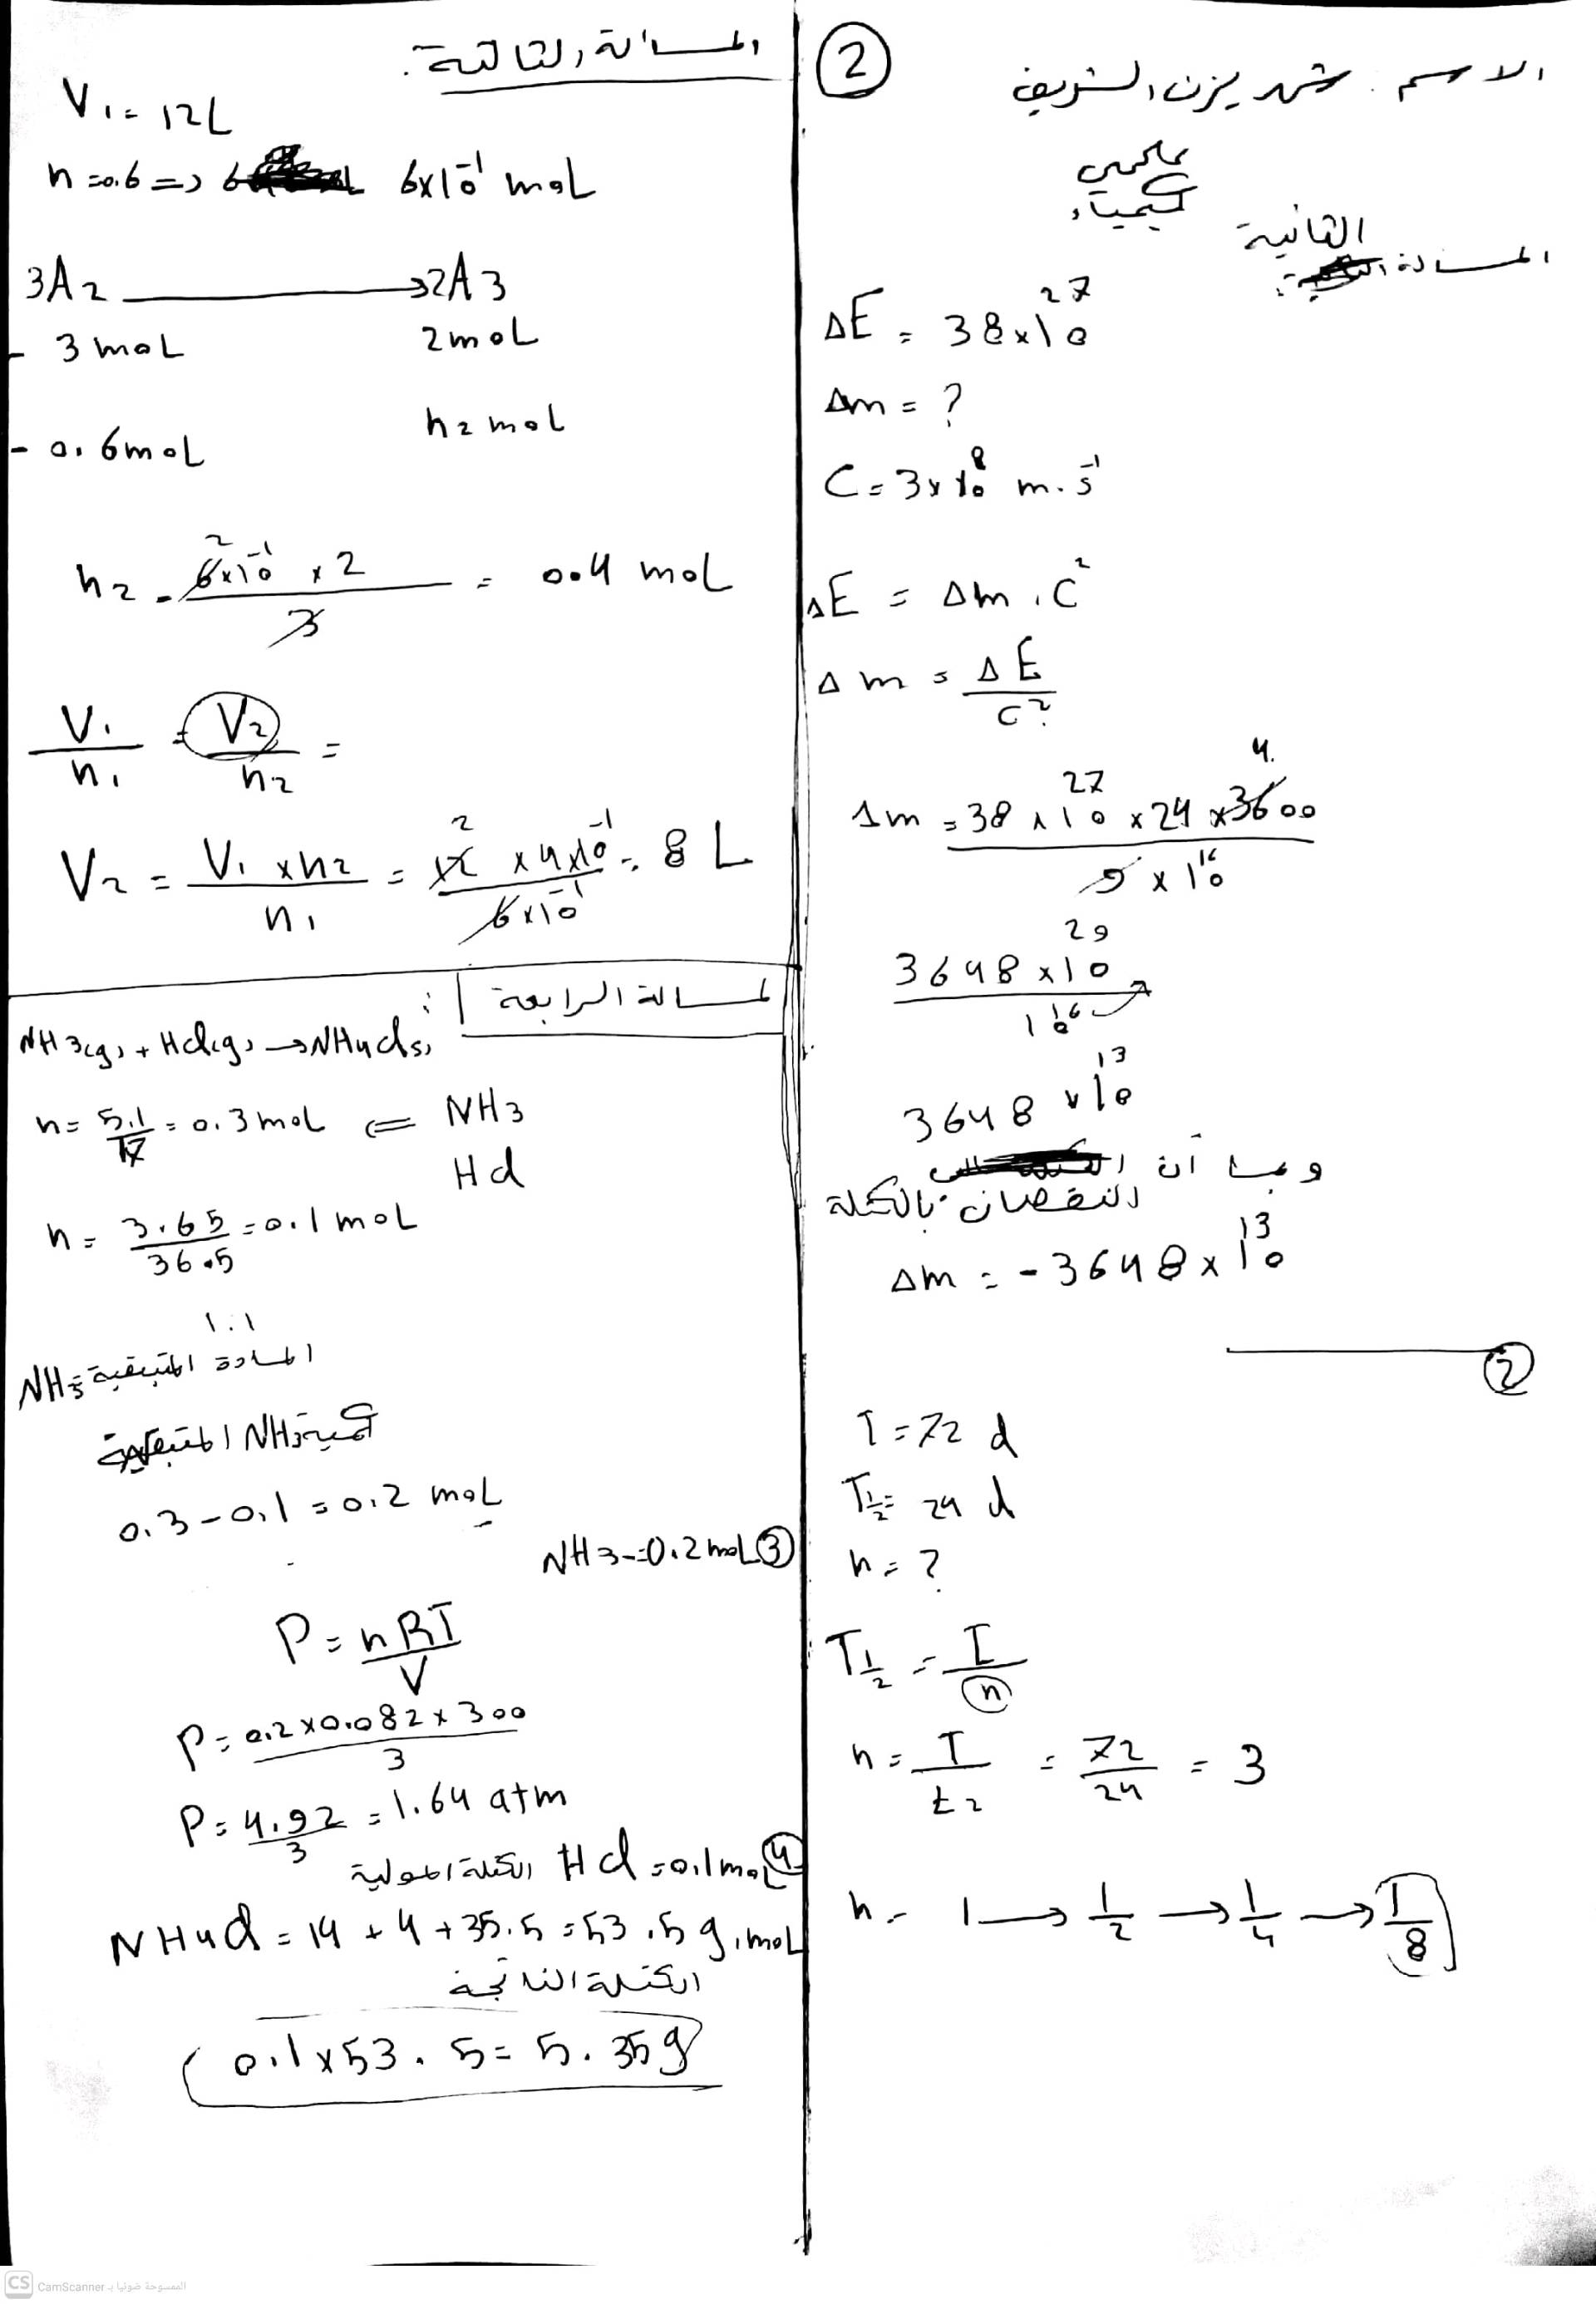 2
الاسم: شهد يزن الشريف
علمي
كيمياء
المسألة الثانية:
ΔE = 38x10²⁷
Δm = ?
C = 3x10⁸ m.s⁻¹
ΔE = Δm . C²
Δm = ΔE / C²
Δm = 38x10²⁷ x 24 x 3600 / 9 x 10¹⁶
4
3648 x10²⁹ / 10¹⁶
3648 x10¹³
وبما أن
النقصان بالكتلة
Δm = - 3648 x 10¹³
2
T = 72 d
T½ = 24 d
n = ?
T½ = T / n
n = T / t2 = 72 / 24 = 3
n = 1 → 1/2 → 1/4 → 1/8
المسألة الثالثة:
V1 = 12L
n = 0.6 => 6x10⁻¹ moL
3A2 → 2A3
3 moL 2 moL
0.6 moL n2 moL
n2 = 6x10⁻¹ x 2 / 3 = 0.4 moL
2
V1 / n1 = V2 / n2 =
V2 = V1 x n2 / n1 = 12 x 4x10⁻¹ / 6x10⁻¹ = 8 L
2
المسالة الرابعة:
NH3(g) + Hcl(g) → NH4cl(s)
n = 5.1 / 17 = 0.3 moL ⇐ NH3
Hcl
n = 3.65 / 36.5 = 0.1 moL
1:1
المادة المتبقية NH3
كمية NH3 المتبقية
0.3 - 0.1 = 0.2 moL
NH3 = 0.2 moL 3
P = nRT / V
P = 0.2 x 0.082 x 300 / 3
P = 4.92 / 3 = 1.64 atm
4 Hcl = 0.1 moL الكتلة المولية
NH4cl = 14 + 4 + 35.5 = 53.5 g.moL
الكتلة الناتجة
0.1 x 53.5 = 5.35g
CS CamScanner الممسوحة ضوئيا بـ